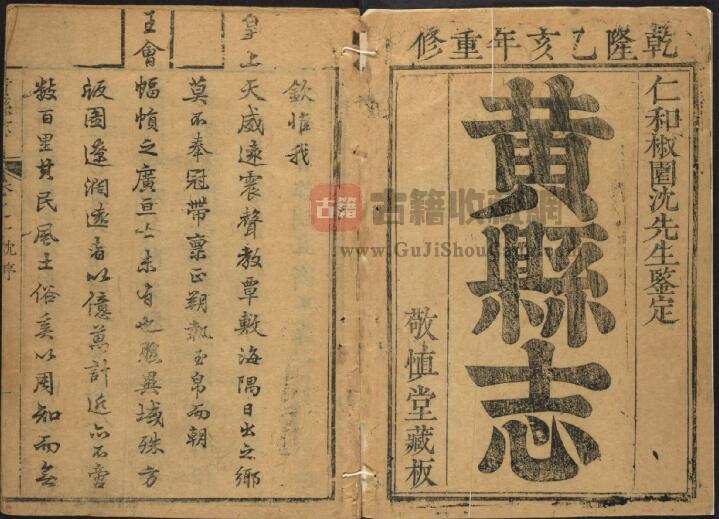 乾隆乙亥年重修
仁和椒園沈先生鑒定
黃縣志
敬慎堂藏板
欽惟我
皇上天威遠震聲教覃敷海隅日出之鄉
莫不奉冠帶稟正朔執玉帛而朝
王會幅幀之廣亘古未有也雖異域殊方
版圖遼濶遠者以億萬計近亦不啻
数百里其民風土俗奚以周知而無
沈序
古籍
古籍收藏網